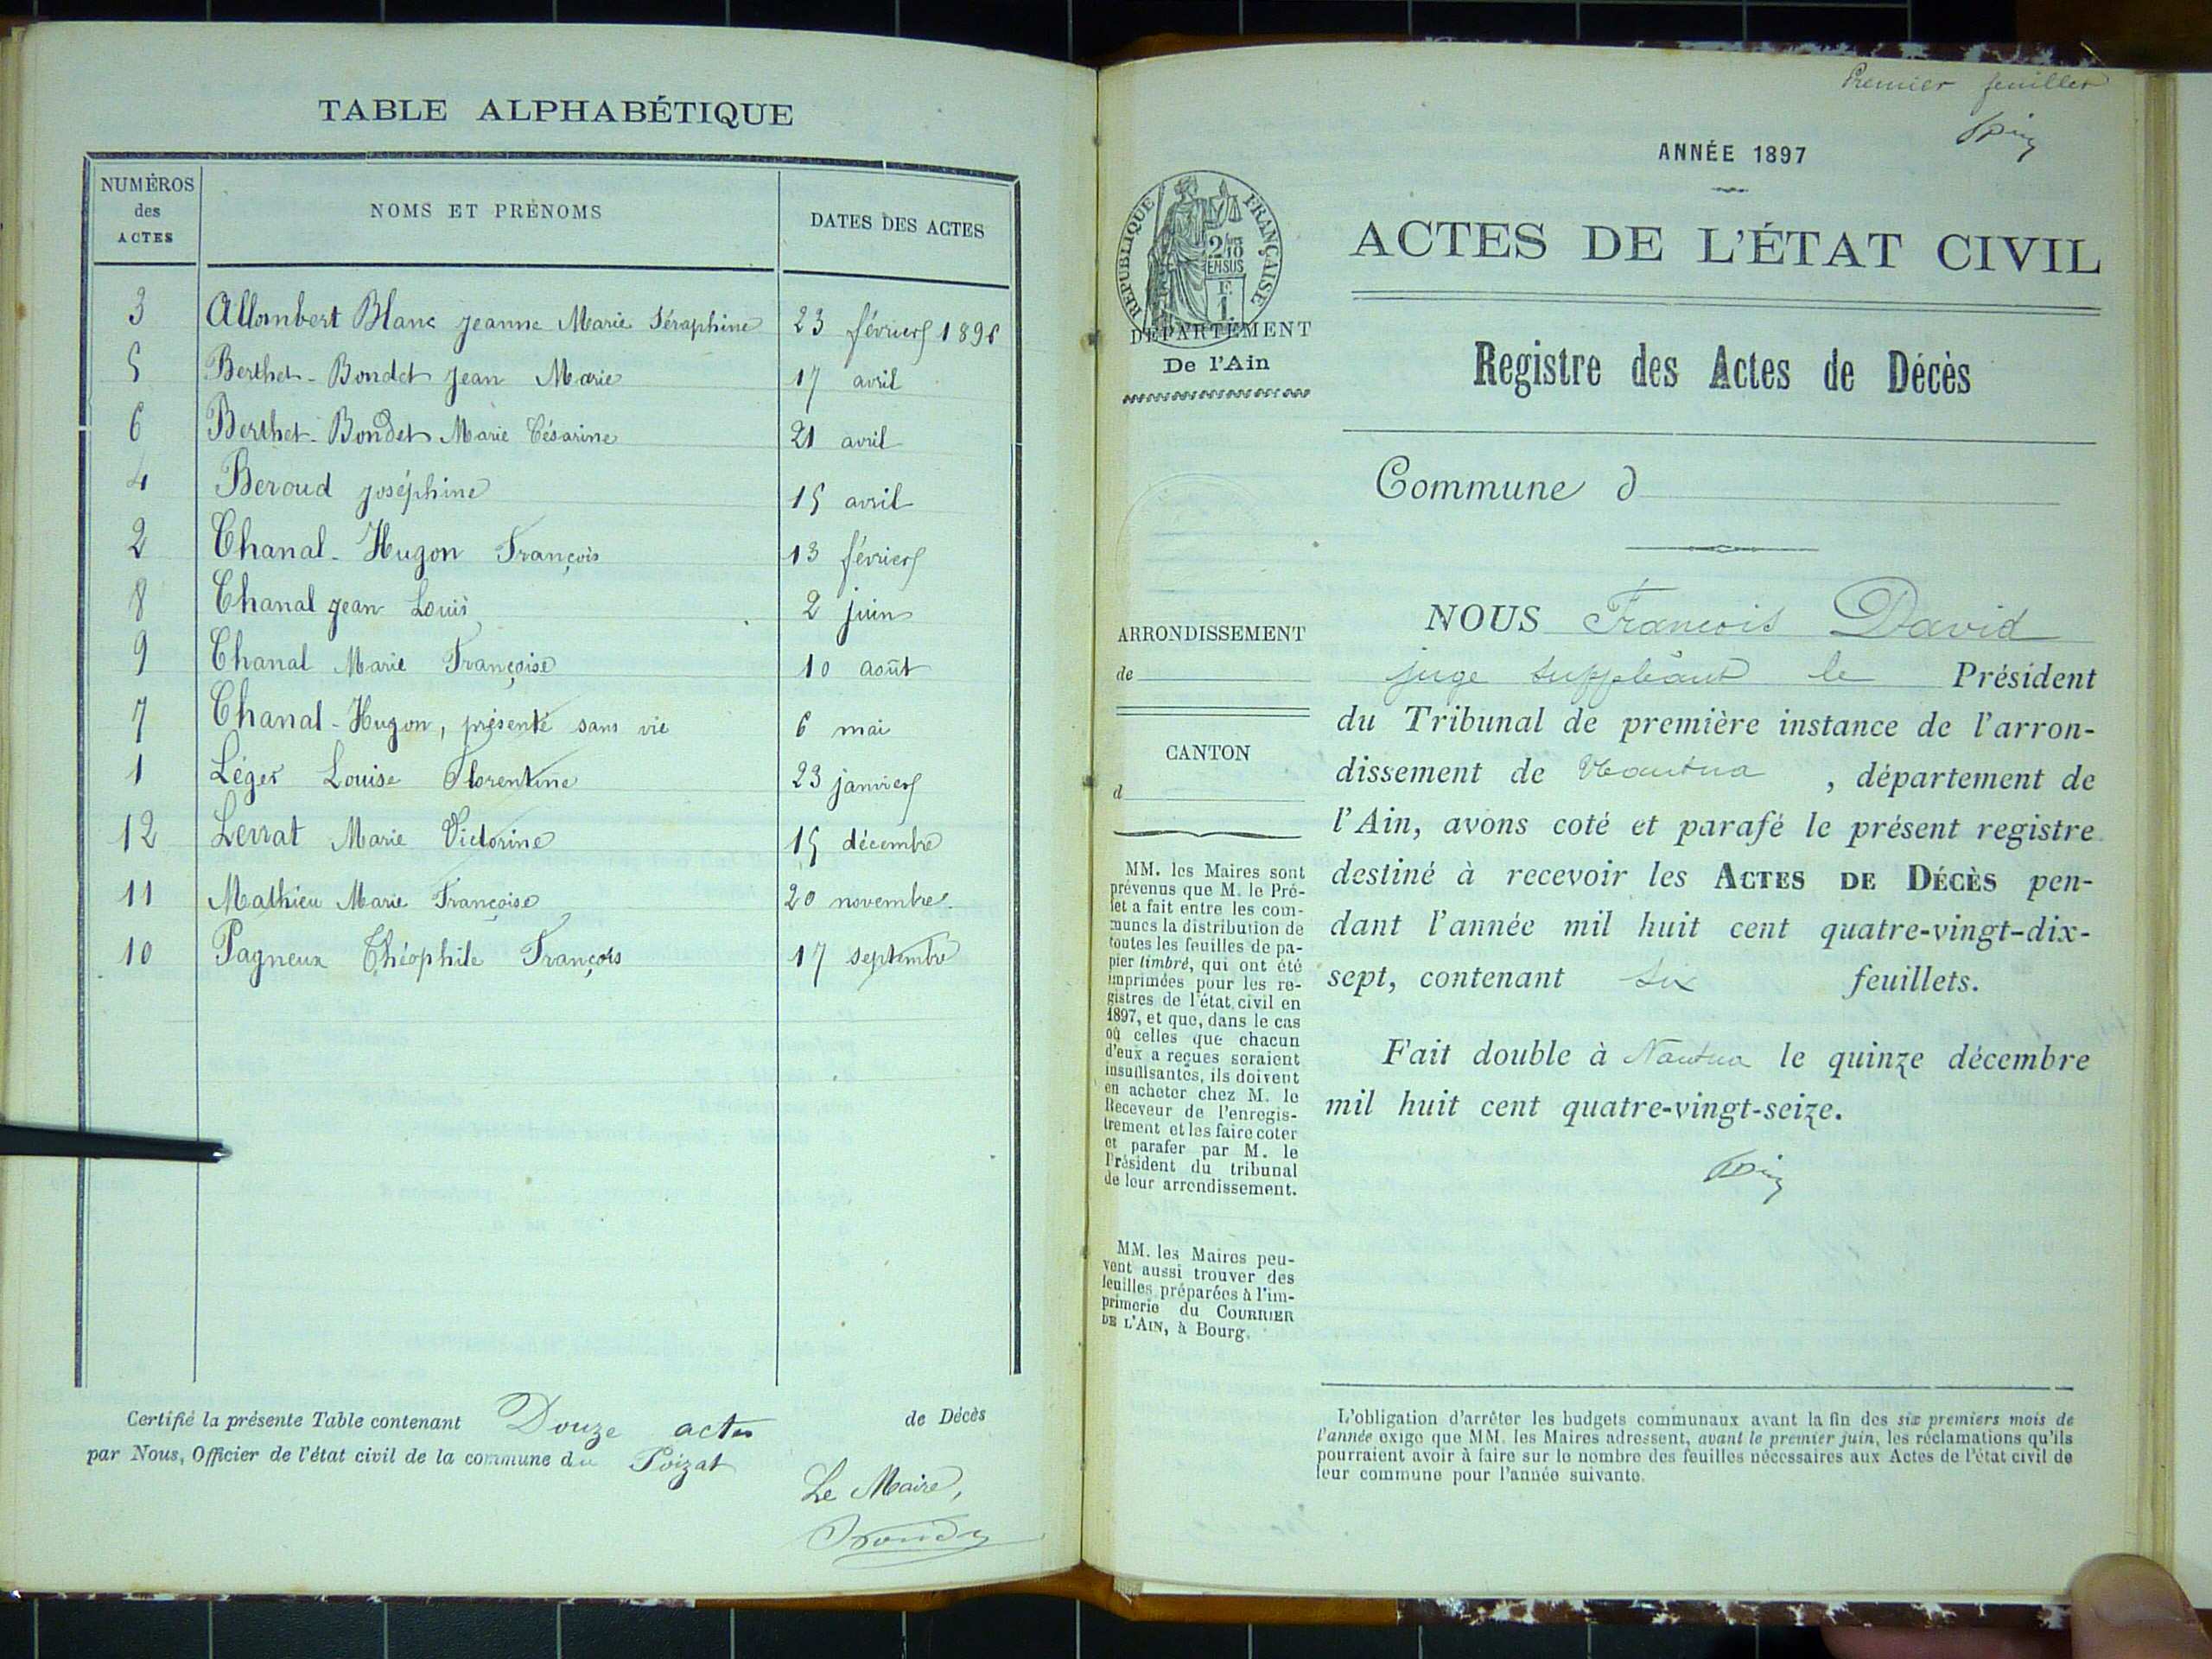 TABLE ALPHABÉTIQUE
NUMÉROS des ACTES
NOMS ET PRÉNOMS
DATES DES ACTES
3 Allombert Blanc Jeanne Marie Séraphine 23 février 1896
5 Berthet-Bondet Jean Marie 17 avril
6 Berthet-Bondet Marie Césarine 21 avril
4 Beroud Joséphine 15 avril
2 Chanal-Hugon François 13 février
8 Chanal Jean Louis 2 juin
9 Chanal Marie Françoise 10 août
7 Chanal-Hugon, présenté sans vie 6 mai
1 Léger Louise Florentine 23 janvier
12 Lerrat Marie Victorine 15 décembre
11 Mathieu Marie Françoise 20 novembre
10 Pagneux Théophile François 17 septembre
Certifié la présente Table contenant Douze actes de Décès
par Nous, Officier de l'état civil de la commune du Poizat
Le Maire,
Premier feuillet
ANNÉE 1897
RÉPUBLIQUE FRANÇAISE
2/10
EN SUS
F.
1.
DÉPARTEMENT
De l'Ain
ACTES DE L'ÉTAT CIVIL
Registre des Actes de Décès
Commune d
ARRONDISSEMENT
de
CANTON
d
MM. les Maires sont
prévenus que M. le Pré-
fet a fait entre les com-
munes la distribution de
toutes les feuilles de pa-
pier timbré, qui ont été
imprimées pour les re-
gistres de l'état civil en
1897, et que, dans le cas
où celles que chacun
d'eux a reçues seraient
insuffisantes, ils doivent
en acheter chez M. le
Receveur de l'enregis-
trement et les faire coter
et parafer par M. le
Président du tribunal
de leur arrondissement.
MM. les Maires peu-
vent aussi trouver des
feuilles préparées à l'im-
primerie du COURRIER
DE L'AIN, à Bourg.
NOUS François David
juge suppléant le Président
du Tribunal de première instance de l'arron-
dissement de Nantua, département de
l'Ain, avons coté et parafé le présent registre
destiné à recevoir les ACTES DE DÉCÈS pen-
dant l'année mil huit cent quatre-vingt-dix-
sept, contenant six feuillets.
Fait double à Nantua le quinze décembre
mil huit cent quatre-vingt-seize.
L'obligation d'arrêter les budgets communaux avant la fin des six premiers mois de
l'année exige que MM. les Maires adressent, avant le premier juin, les réclamations qu'ils
pourraient avoir à faire sur le nombre des feuilles nécessaires aux Actes de l'état civil de
leur commune pour l'année suivante.